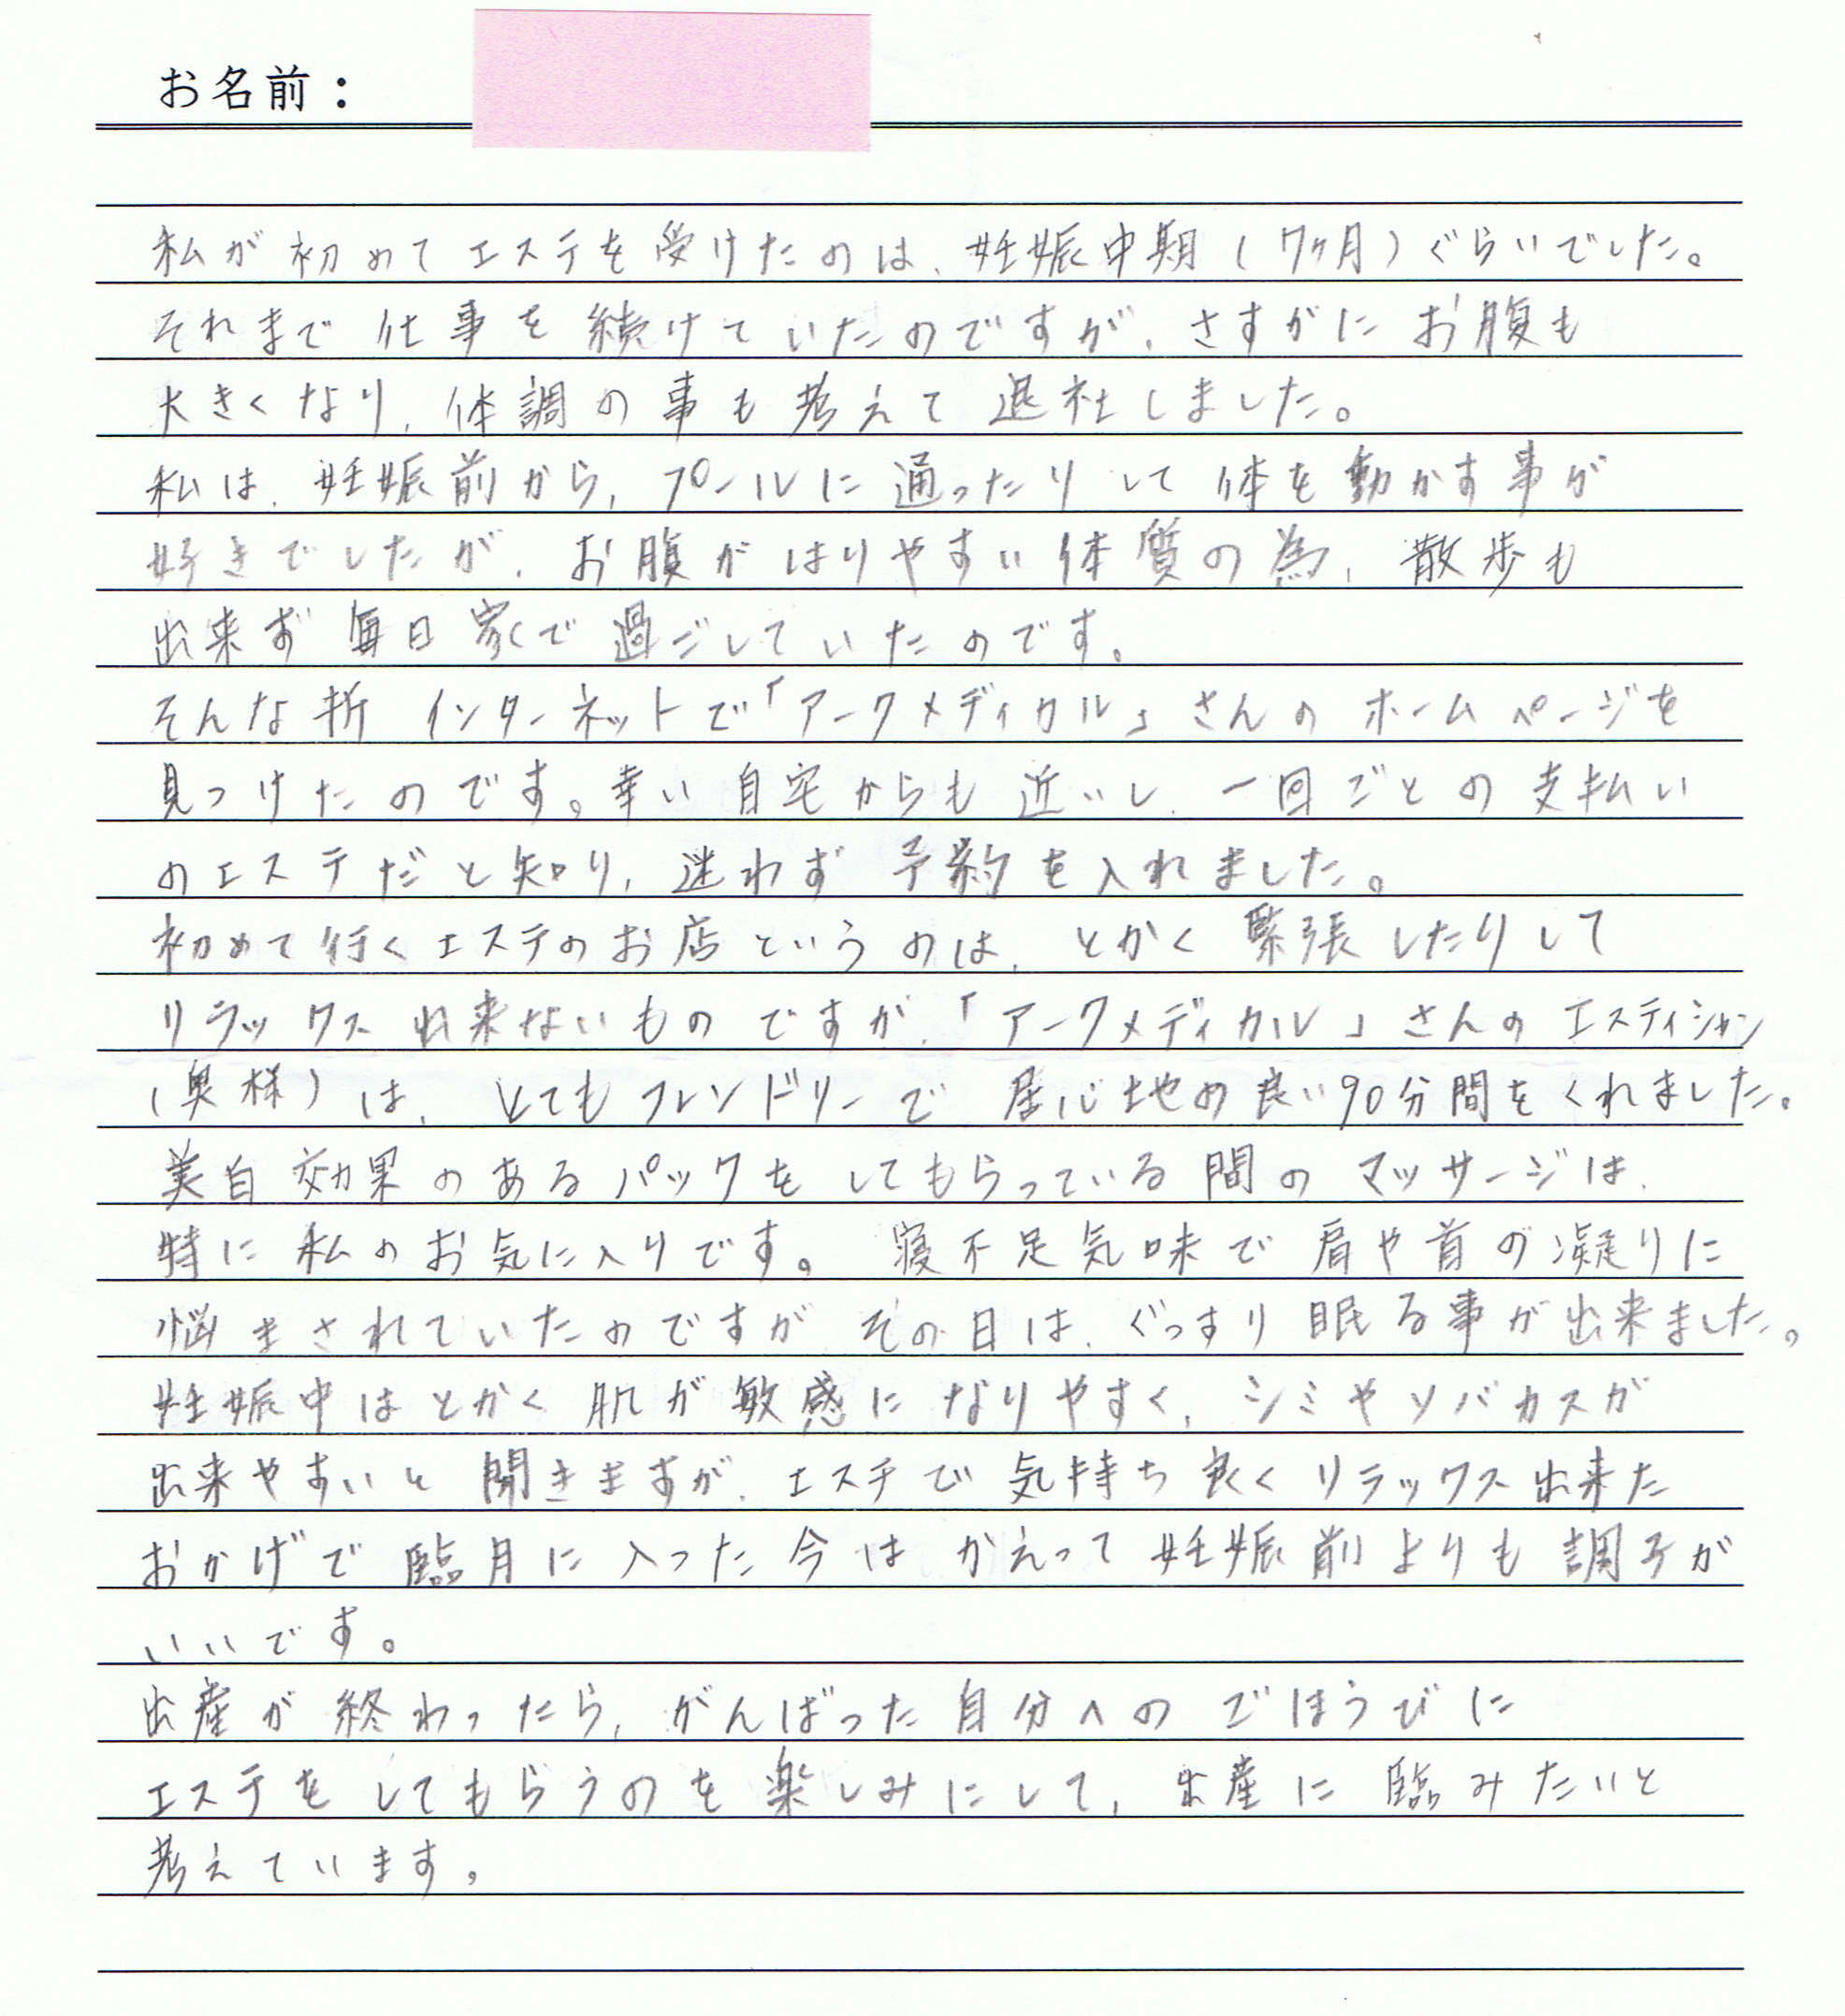 お名前：
私が初めてエステを受けたのは、妊娠中期（7ヶ月）ぐらいでした。
それまで仕事を続けていたのですが、さすがにお腹も
大きくなり、体調の事も考えて退社しました。
私は、妊娠前から、プールに通ったりして体を動かす事が
好きでしたが、お腹がはりやすい体質の為、散歩も
出来ず毎日家で過ごしていたのです。
そんな折インターネットで「アークメディカル」さんのホームページを
見つけたのです。幸い自宅からも近いし、一回ごとの支払い
のエステだと知り、迷わず予約を入れました。
初めて行くエステのお店というのは、とかく緊張したりして
リラックス出来ないものですが、「アークメディカル」さんのエスティシャン
（奥様）は、とてもフレンドリーで居心地の良い90分間をくれました。
美白効果のあるパックをしてもらっている間のマッサージは、
特に私のお気に入りです。寝不足気味で肩や首の凝りに
悩まされていたのですがその日は、ぐっすり眠る事が出来ました。
妊娠中はとかく肌が敏感になりやすく、シミやソバカスが
出来やすいと聞きますが、エステで気持ち良くリラックス出来た
おかげで臨月に入った今はかえって妊娠前よりも調子が
いいです。
出産が終わったら、がんばった自分へのごほうびに
エステをしてもらうのを楽しみにして、出産に臨みたいと
考えています。